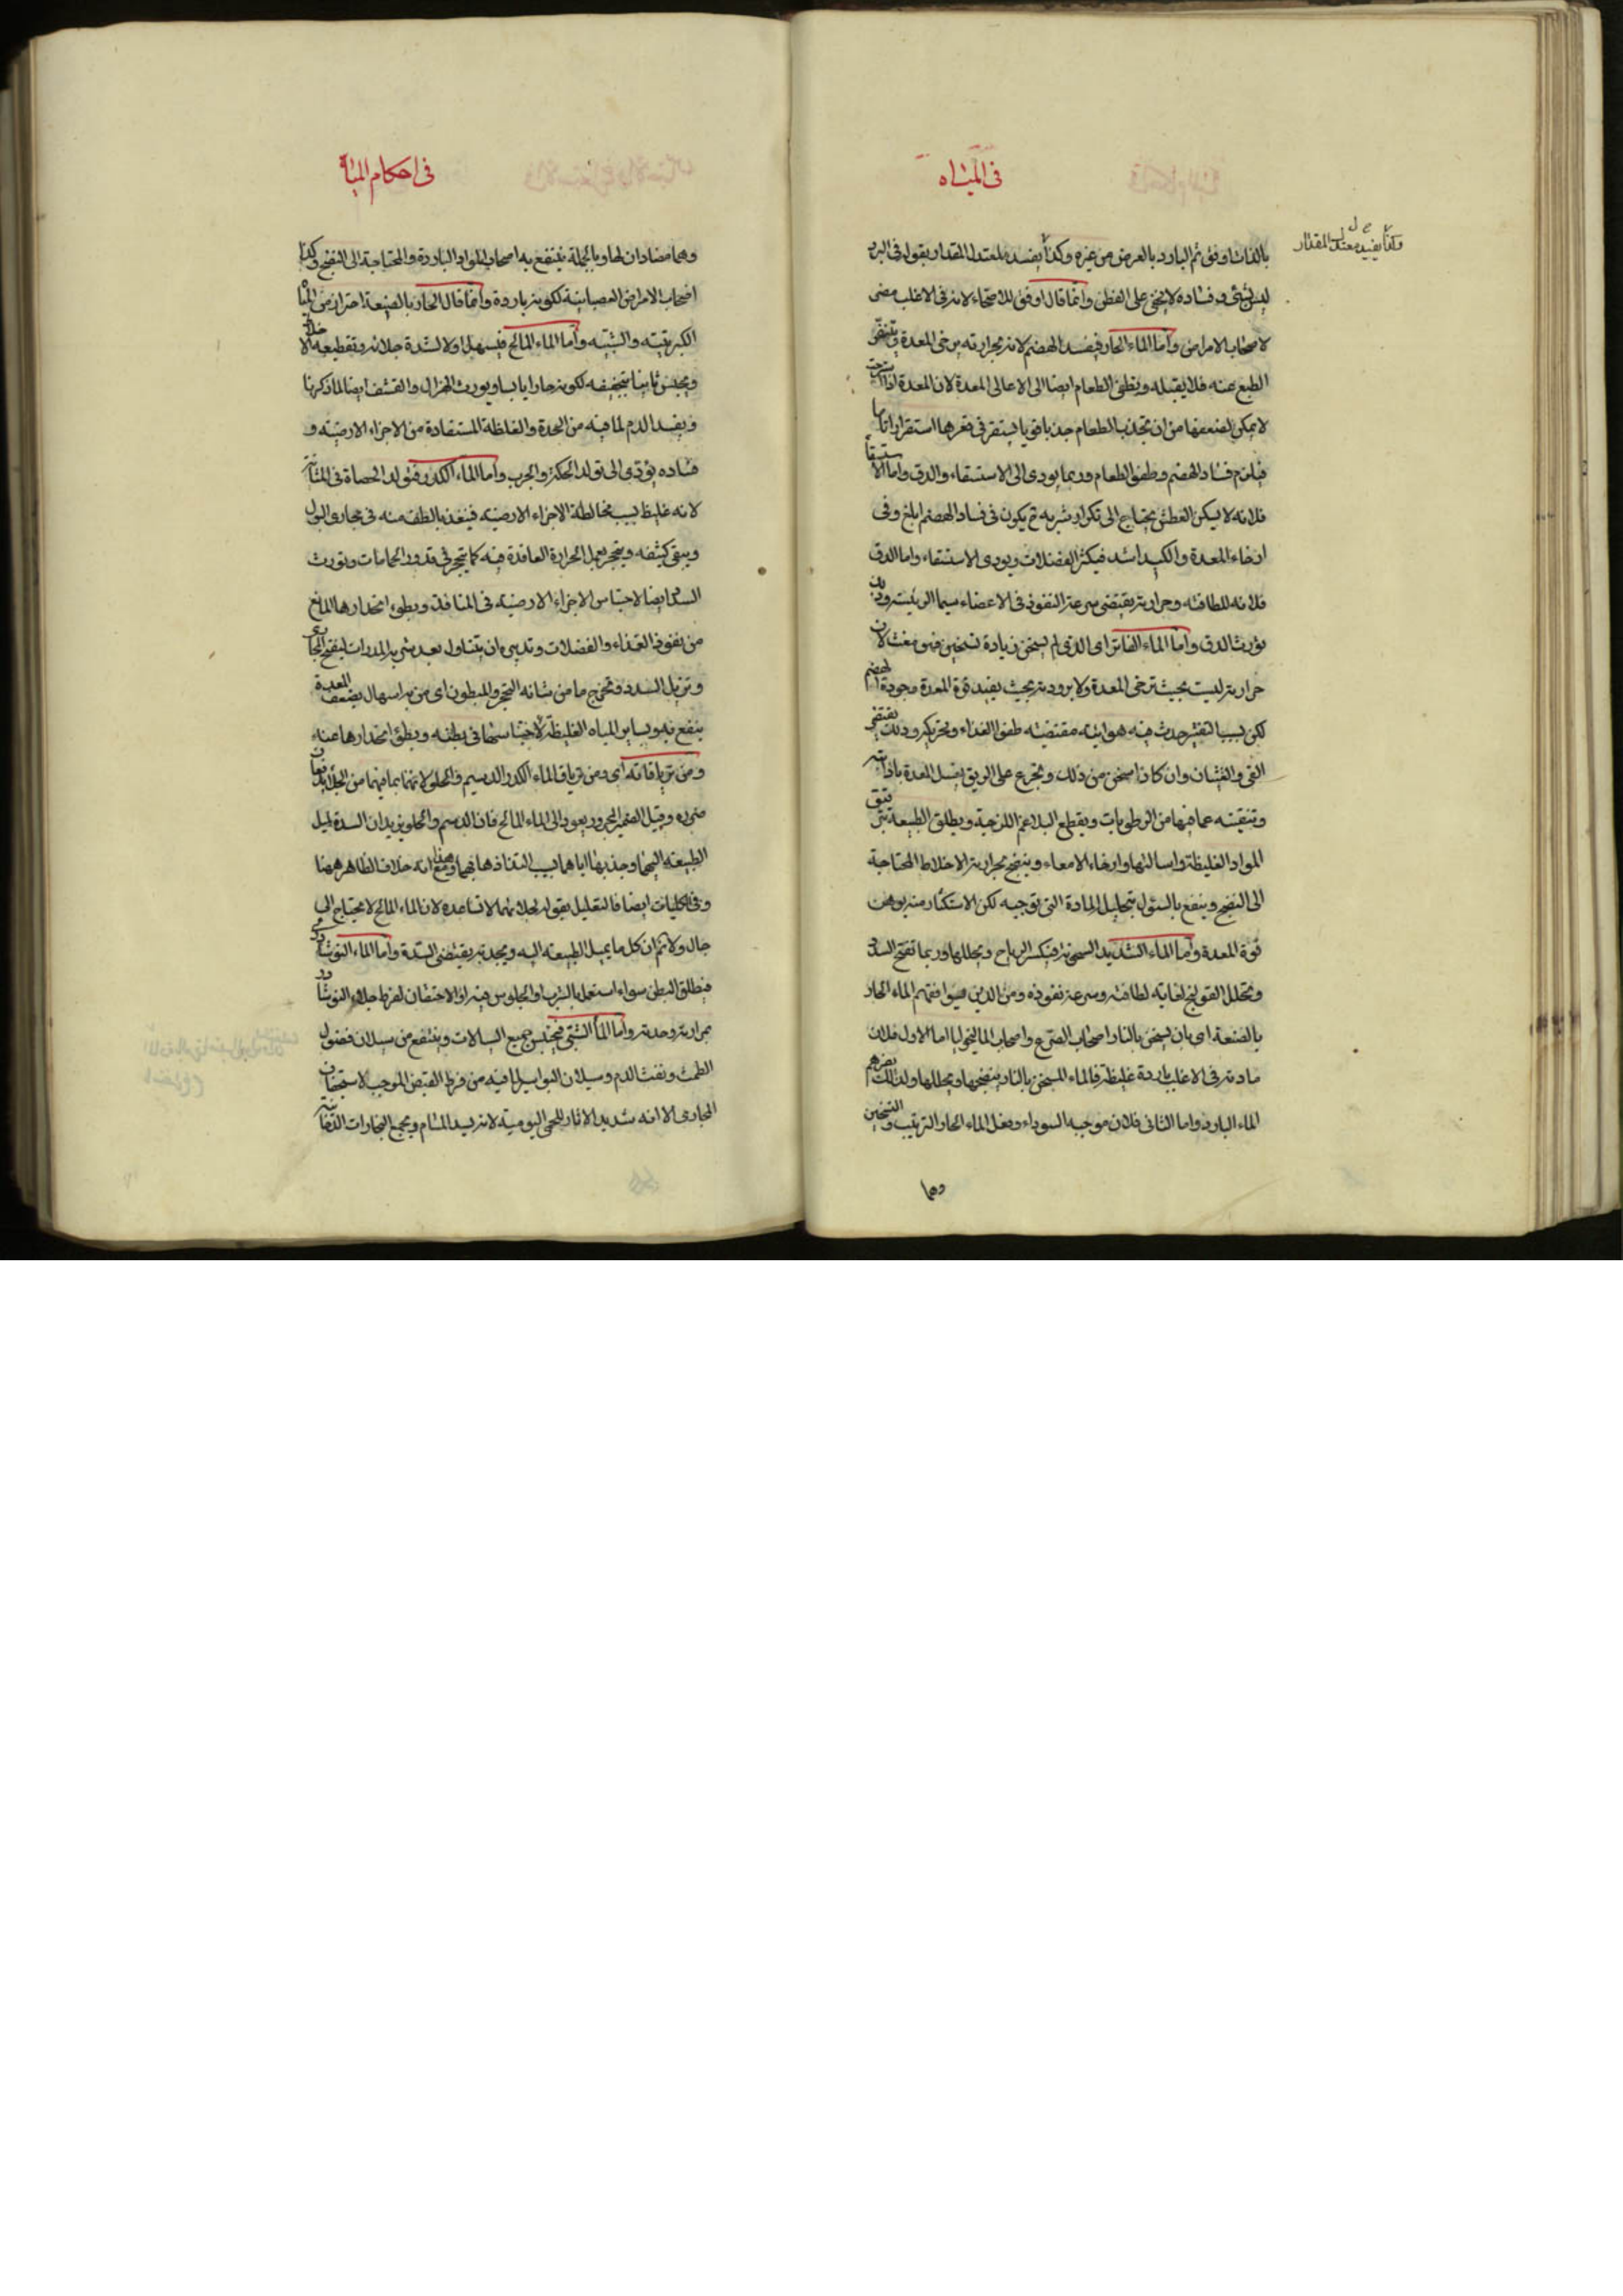 فى المياه
وكذا يفيده معتدل المقدار
بالذات اوفق ثم البارد بالعرض من غيره وكذا يفسده المعتدل المقدار بقوله فى البرد
ليس بشئ وفساده لا يخفى على الفطن وانما قال اوفق للاصحاء لانه فى الاغلب مضر
لاصحاب الامراض واما الماء الحار فيفسد الهضم لانه بحرارته يرخى المعدة
الطبع عنه فلا يقبله ويطفى الطعام ايضا الى الاعالى المعدة لان المعدة اذا استرخت
لا يمكن لضعفها من ان تجذب الطعام جذبا قويا فيستقر فى قعرها استقرارا تاما
فيلزم فساد الهضم وطفو الطعام وربما يودى الى الاستسقاء والدق واما الاستسقا
فلانه لا يسكن العطش يحتاج الى تكرار شربه ثم يكون فى فساد الهضم ابلغ وفى
ارخاء المعدة والكبد اشد فيكثر الفضلات ويودى الاستسقاء واما الدق
فلانه للطافته وحرارته يقتضى سرعة النفوذ فى الاعضاء سيما الرئيسة
يورث الدق واما الماء الفاتر اى الذى لم يسخن زيادة تسخين فهو مغث لان
حرارته ليست بحيث ترخى المعدة ولا برودته بحيث يفيد قوة المعدة وجودة الهضم
لكن بسبب التفتير حدث فيه هوائية مقتضية طفو الغذاء وتحريكه وذلك يقتضى
القى والغثيان وان كان اسخن من ذلك وتجرع على الريق غسل المعدة
وتنقيته عما فيها من الرطوبات ويقطع البلاغم اللزجة ويطلق الطبيعة
المواد الغليظة واسالتها وارخاء الامعاء وينضج بحرارته الاخلاط المحتاجة
الى النضج وينفع بالسئول بتحليل المادة التى توجبه لكن الاستكثار منه يوهن
قوة المعدة واما الماء الشديد السخونة فيكسر الرياح ويحللها وربما تفتح السدد
وتحلل القولنج لغاية لطافته وسرعة نفوذه ومن الذين يوافقهم الماء الحار
بالصنعة اى بان يسخن بالنار اصحاب الصرع واصحاب الماليخوليا اما الاول فلان
مادته فى الاغلب باردة غليظة فالماء المسخن بالنار ينضجها ويحللها ولذلك يضرهم
الماء البارد واما الثانى فلان موجبه السوداء وفعل الماء الحار الترتيب والتسخين
وهما
فى احكام المياه
وهما مضادان لها وبالجملة ينتفع به اصحاب المواد الباردة والمحتاجة الى النضج وكذا
اصحاب الامراض العصبانية لكونه باردة وانما قال الحار بالصنعة احتراز من المياه
الكبريتية والشبية واما الماء المالح فيسهل اولا لشدة جلائه وتقطيعه
ويحبس ثانيا بتجفيفه لكونه حارا يابسا ويورث الهزال والقشف ايضا لما ذكرنا
ويفسد الدم لما فيه من الحدة والغلظة المستفادة من الاجزاء الارضية و
فساده يؤدى الى تولد الحكة والجرب واما الماء الكدر فيولد الحصاة فى المثانة
لانه غليظ بسبب مخالطة الاجزاء الارضية فينفذ بالطف منه فى مجارى البول
ويبقى كثيفه ويتحجر بعمل الحرارة العاقدة فيه كما يتحجر فى قدور الحمامات ويورث
السدد ايضا لاحتباس الاجزاء الارضية فى المنافذ وبطوء انحدارها المانع
من نفوذ الغذاء والفضلات وتدبيره ان يتناول بعد شربه المدرات ليفتح المجارى
وتزيل السدد وتخرج ما من شانه التحجر والمبطون اى من به اسهال بضعف المعدة
ينتفع به وبساير المياه الغليظة لاحتباسها فى بطنه وبطئ انحدارها عنه
ومن ترياقاته اى ومن ترياق الماء الكدر الدسم والحلو لانهما بما فيهما من الجلا يدفعان
ضرره وقيل الضمير المجرور يعود الى الماء المالح فان الدسم والحلو يزيدان السدة لميل
الطبيعة اليهما وجذبها اياهما بسبب التذاذها بهما ومع هذا انه خلاف الظاهر ههنا
وفى الكليات ايضا فالتعليل بقوله لجلائهما لا تساعده لان الماء المالح لا يحتاج الى
جال ولا ثم ان كل ما يميل الطبيعة اليه ويجذبه يقتضى السدة واما الماء النوشادرى
فيطلق البطن سواء استعمل بالشرب او الجلوس فيه او الاحتقان لفرط جلاء النوشادر
بمرارته وحدته واما الماء الشبى فيحبس جميع السيالات وينتفع من سيلان فضول
الطمث ونفث الدم وسيلان البواسير لما فيه من فرط القبض الموجب لاستحصاف
المجارى الا انه شديد الاثار للحمى اليومية لانه يسد المسام ويجمع البخارات الدخانية